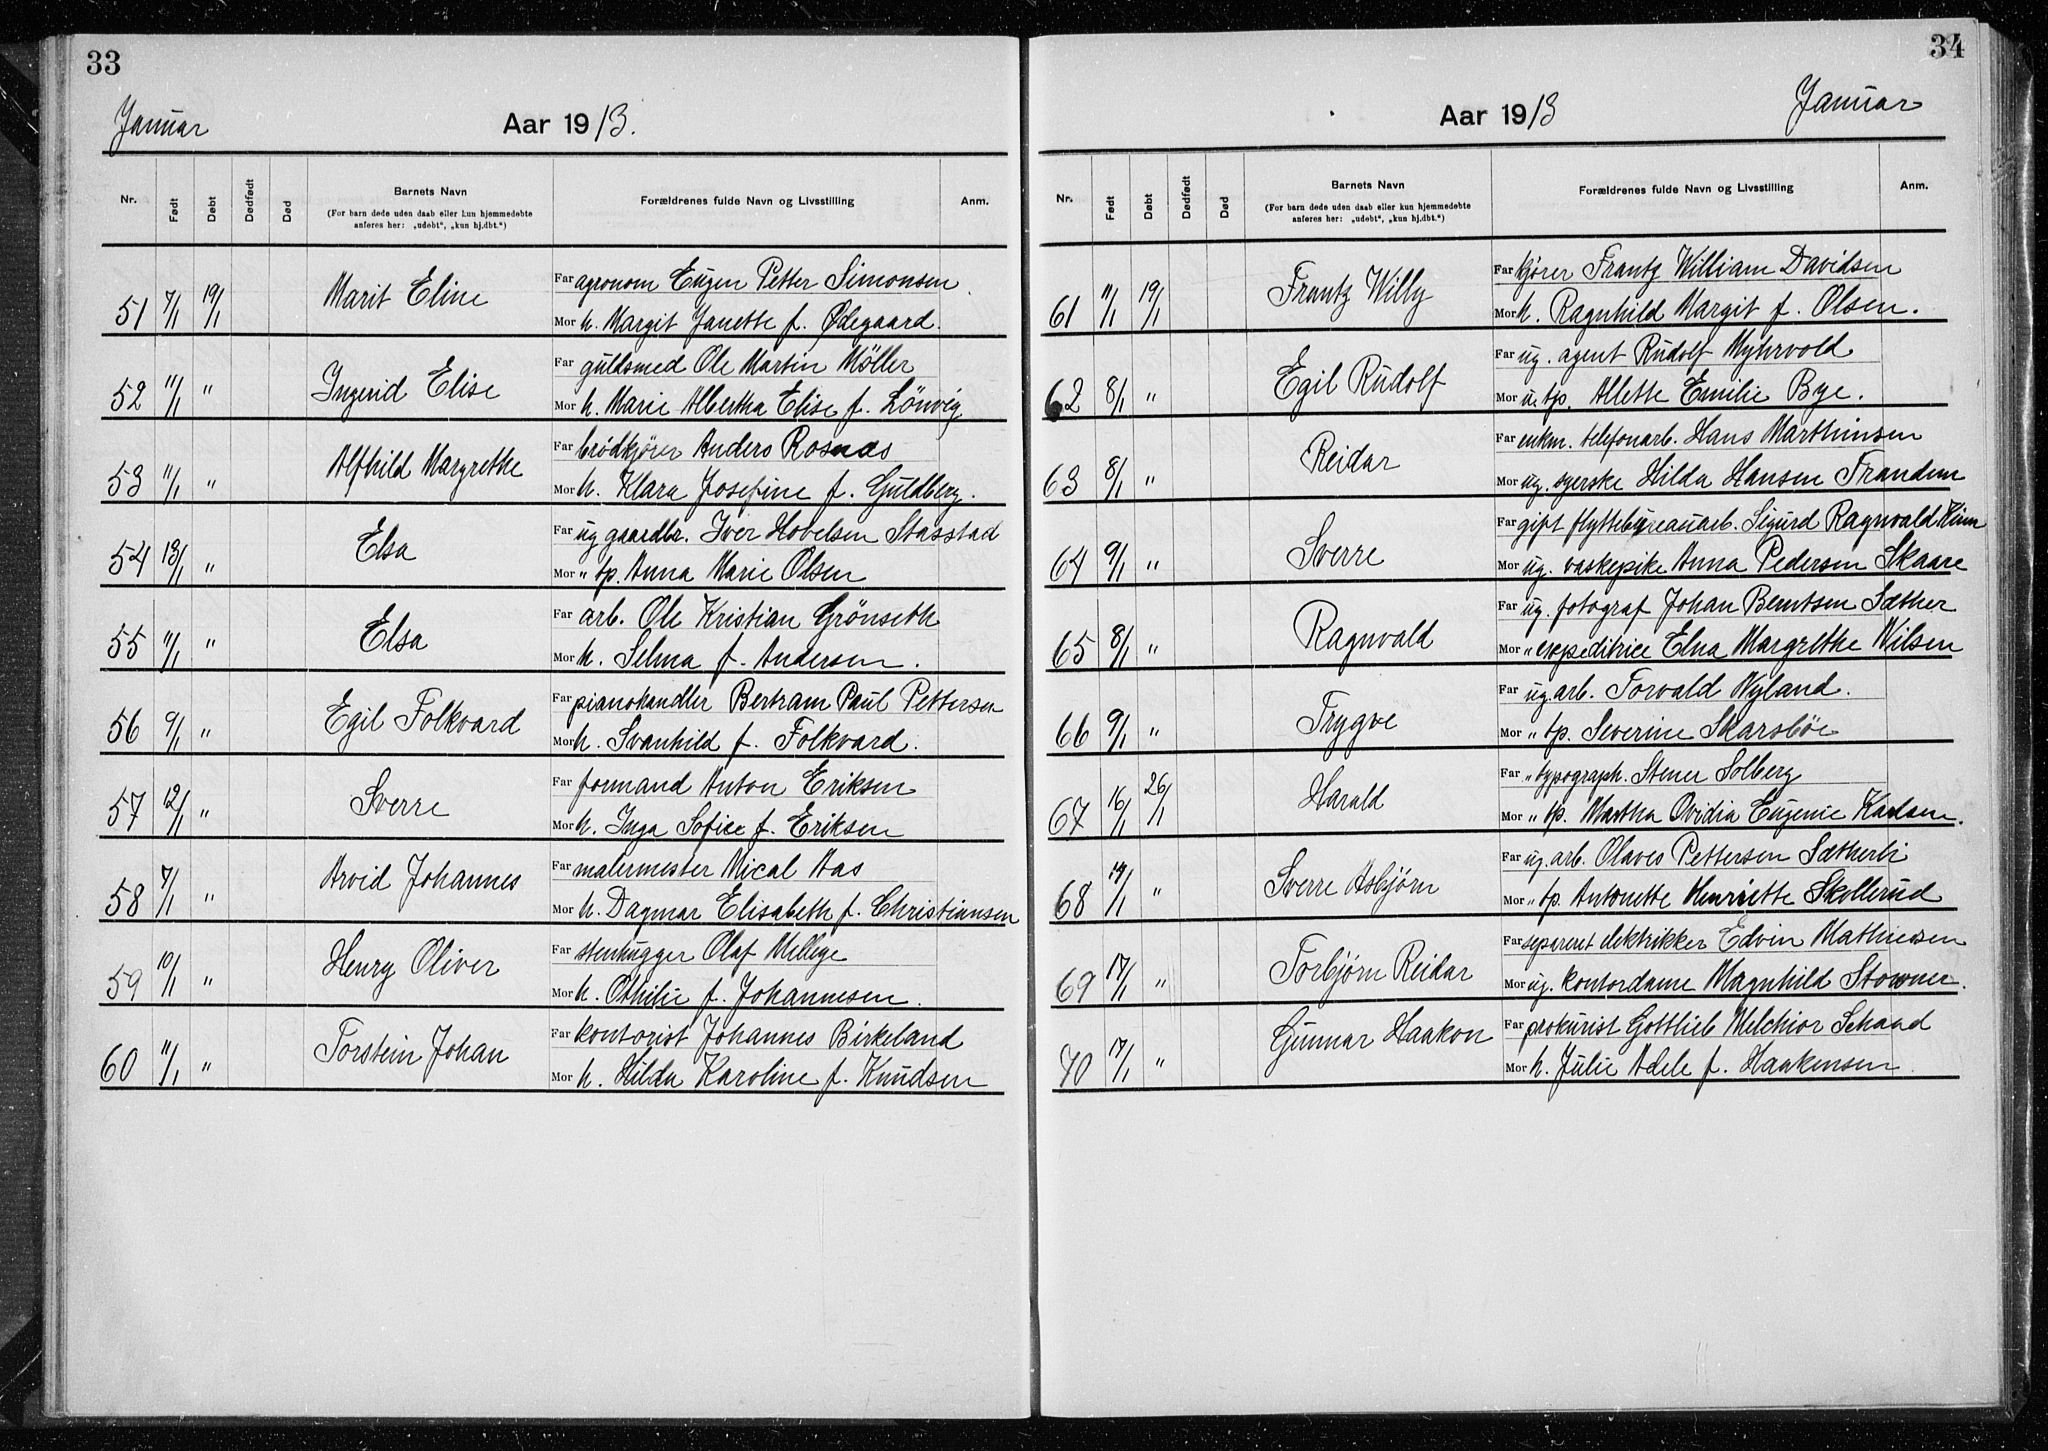 33
Januar
Aar 1913.
Nr. Født Døbt Dødfødt Død Barnets Navn Forældrenes fulde Navn og Livsstilling Anm.
(For barn døde uden daab eller kun hjemmedøbte
anføres her: „udøbt“, „kun hj.dbt.“)
51 7/1 19/1 Marit Eline Far agronom Eugen Petter Simonsen
Mor h. Margit Janette f. Ødegaard.
52 11/1 " Ingerid Elise Far guldsmed Ole Martin Möller
Mor h. Marie Albertha Elise f. Lönvig
53 11/1 " Alfhild Margrethe Far brödkjører Anders Rosnæs
Mor h. Klara Josefine f. Guldberg.
54 13/1 " Elsa Far ug gaardbr. Iver Hovelsen Stasstad
Mor " tp. Anna Marie Olsen
55 11/1 " Elsa Far arb. Ole Kristian Grönseth
Mor h. Selma f. Andersen.
56 9/1 " Egil Folkvard Far pianohandler Bertram Paul Pettersen
Mor h. Svanhild f. Folkvard.
57 12/1 " Sverre Far formand Anton Eriksen
Mor h. Inga Sofie f. Eriksen
58 7/1 " Arvid Johannes Far malermester Mical Aas
Mor h. Dagmar Elisabeth f. Christiansen
59 10/1 " Henry Oliver Far stenhugger Olaf Mellege
Mor h. Othilie f. Johannesen.
60 11/1 " Torstein Johan Far kontorist Johannes Birkeland
Mor h. Hilda Karoline f. Knudsen
34
Januar
Aar 1913
Nr. Født Døbt Dødfødt Død Barnets Navn Forældrenes fulde Navn og Livsstilling Anm.
(For barn døde uden daab eller kun hjemmedøbte
anføres her: „udøbt“, „kun hj.dbt.“)
61 11/1 19/1 Frantz Willy Far kjører Frantz William Davidsen
Mor h. Ragnhild Margit f. Olsen.
62 8/1 " Egil Rudolf Far ug. agent Rudolf Myhrvold
Mor u. tp. Allette Emilie Bye.
63 8/1 " Reidar Far enkm. telefonarb. Hans Marthinsen
Mor ug. syerske Hilda Hansen Trandem
64 9/1 " Sverre Far gift flyttebureauarb. Sigurd Ragnvald
Mor ug. vaskepike Anna Pedersen Skaare
65 8/1 " Ragnvald Far ug. fotograf Johan Berntsen Sæther
Mor " expeditrice Elna Margrethe Nilsen
66 9/1 " Trygve Far ug. arb. Torvald Nyland.
Mor " tp. Severine Skarsböe
67 16/1 26/1 Harald Far " typograph. Stener Solberg
Mor " tp. Martha Ovidia Eugenie Karlsen.
68 19/1 " Sverre Asbjörn Far ug. arb. Olaves Pettersen Sætherli
Mor " tp. Antonette Henriette Skollerud
69 17/1 " Torbjørn Reidar Far separeret elektrikker Edvin Mathiesen
Mor ug. kontordame Magnhild Stowner.
70 17/1 " Gunnar Haakon Far prokurist Gottlieb Melchior Schaad
Mor h. Julie Adele f. Haakensen